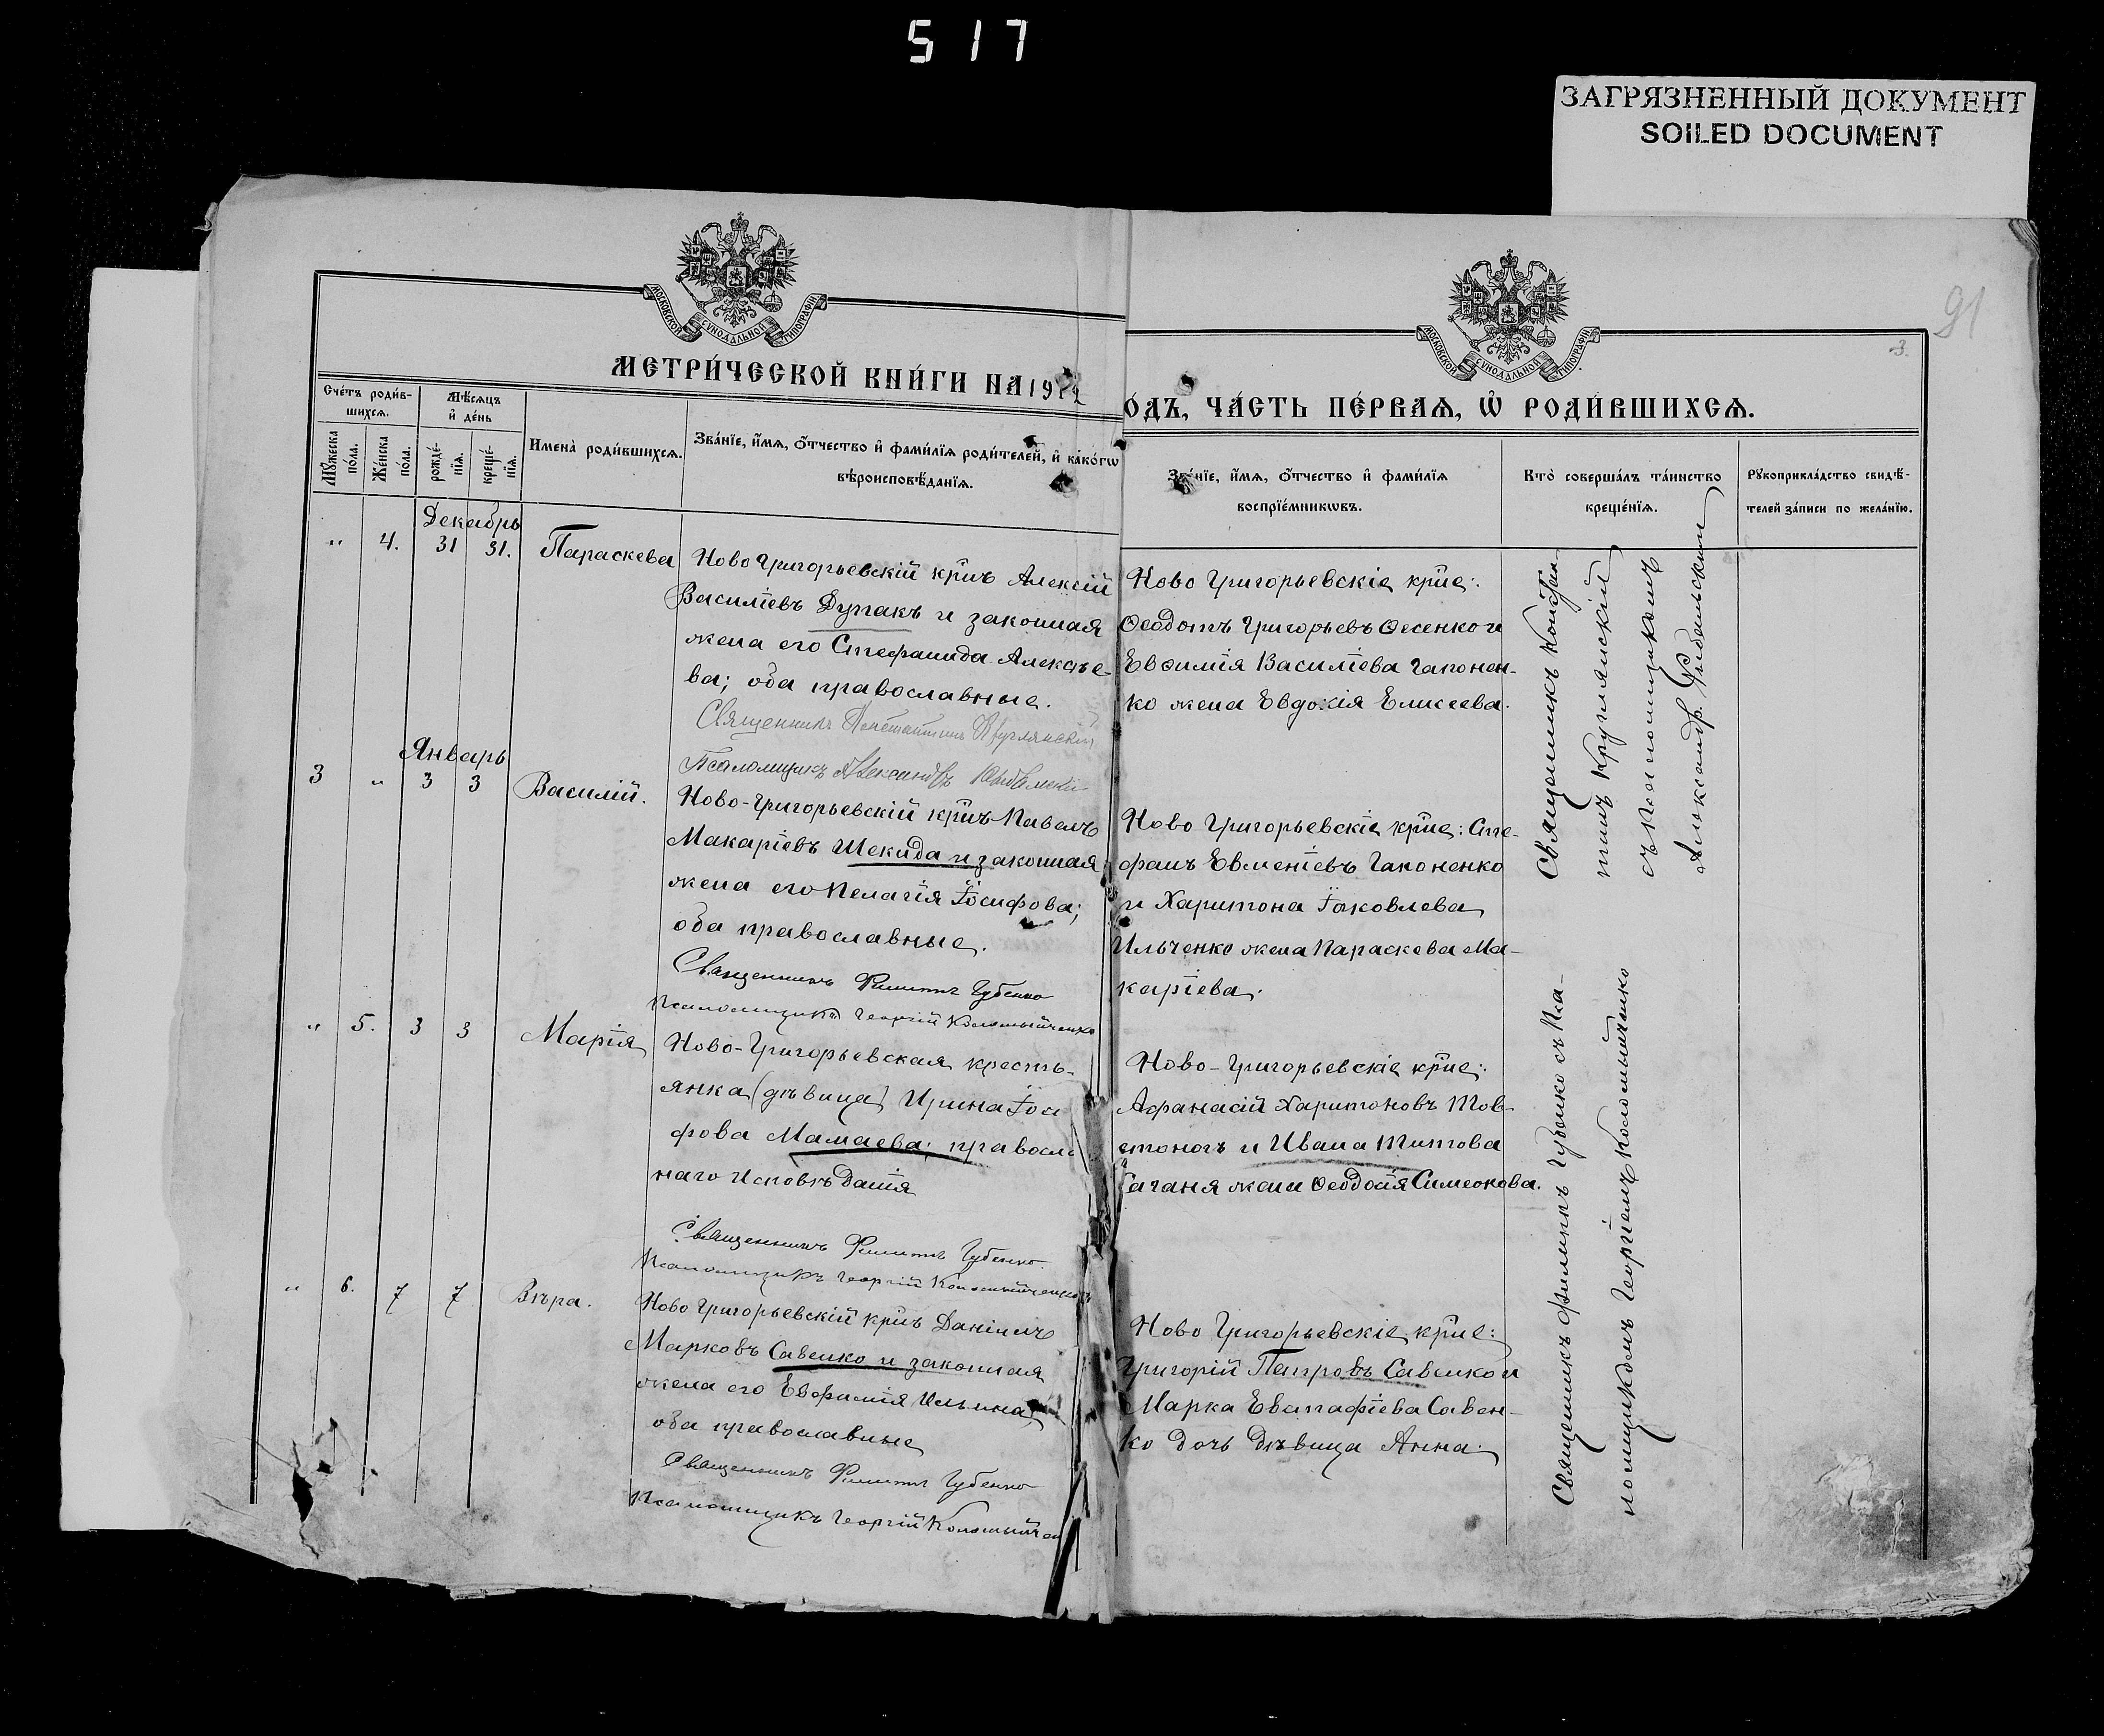 517
ЗАГРЯЗНЕННЫЙ ДОКУМЕНТ
SOILED DOCUMENT
91
3.
МОСКОВСКОЙ СѴНОДАЛЬНОЙ ТИПОГРАФІИ
МОСКОВСКОЙ СѴНОДАЛЬНОЙ ТИПОГРАФІИ
МЕТРИ́ЧЕСКОЙ КНИ́ГИ НА 1912
ОДЪ, ЧА́СТЬ ПЕ́РВАѦ, Ѿ РОДИ́ВШИХСѦ.
Сче́тъ роди́в-
шихсѧ.
Мѣ́сѧцъ
и҆ де́нь
Мꙋ́жеска
по́ла.
Же́нска
по́ла.
рожде́-
нїѧ.
креще́-
нїѧ.
Имена̀ роди́вшихсѧ.
Зва́нїе, и҆́мѧ, ѻ҆́тчество и҆ фами́лїѧ роди́телей, и҆ како́гѡ
вѣроисповѣ́данїѧ.
Зва́нїе, и҆́мѧ, ѻ҆́тчество и҆ фами́лїѧ
воспрїе́мникѡвъ.
Кто̀ соверша́лъ та́инство
креще́нїѧ.
Рꙋкоприкла́дство свидѣ́-
телей за́писи по жела́нїю.
Декабрь
" 4. 31 31. Параскева
Ново Григорьевскій кр̃нъ Алексій
Василіевъ Дупакъ и законная
жена его Стефанида Алексѣе
ва; оба православные.
Священникъ Константинъ Круглянскій
Псаломщикъ Александръ
Ново Григорьевскіе кр̃не:
Ѳеодотъ Григорьевъ Ѳесенко и
Евѳимія Василіева Гапонен-
ко жена Евдокія Елисеева.
Священникъ Констан-
тинъ Круглянскій
съ псаломщикомъ
Александр.
Январь
3 " 3 3 Василій.
Ново-Григорьевскій кр̃нъ Павелъ
Макаріевъ Шекида и законная
жена его Пелагія Іосифова;
оба православные.
Священникъ Филиппъ Губенко
Псаломщикъ Георгій Коломыйченко
Ново Григорьевскіе кр̃не: Сте-
фанъ Евменіевъ Гапоненко
и Харитона Іаковлева
Ильченко жена Параскева Ма-
каріева.
" 5. 3 3 Марія
Ново-Григорьевская кресть-
янка (дѣвица) Ирина Іоси
фова Мамаева; правосл
наго исповѣданія
Священникъ Филиппъ Губенко
Псаломщикъ Георгій Коломыйченко
Ново-Григорьевскіе кр̃не:
Афанасій Харитоновъ Тов-
стоногъ и Ивана Титова
Гаганя жена Ѳеодосія Симеонова.
Священникъ Филиппъ Губенко съ Пса-
ломщикомъ Георгіемъ Коломыйченко
" 6. 7 7 Вѣра.
Ново Григорьевскій кр̃нъ Даніилъ
Марковъ Савенко и законная
жена его Евфимія Ильина,
оба православные
Священникъ Филиппъ Губенко
Псаломщикъ Георгій Коломыйчен
Ново Григорьевскіе кр̃не:
Григорій Петровъ Савенко и
Марка Евстафіева Савен-
ко дочь дѣвица Анна.